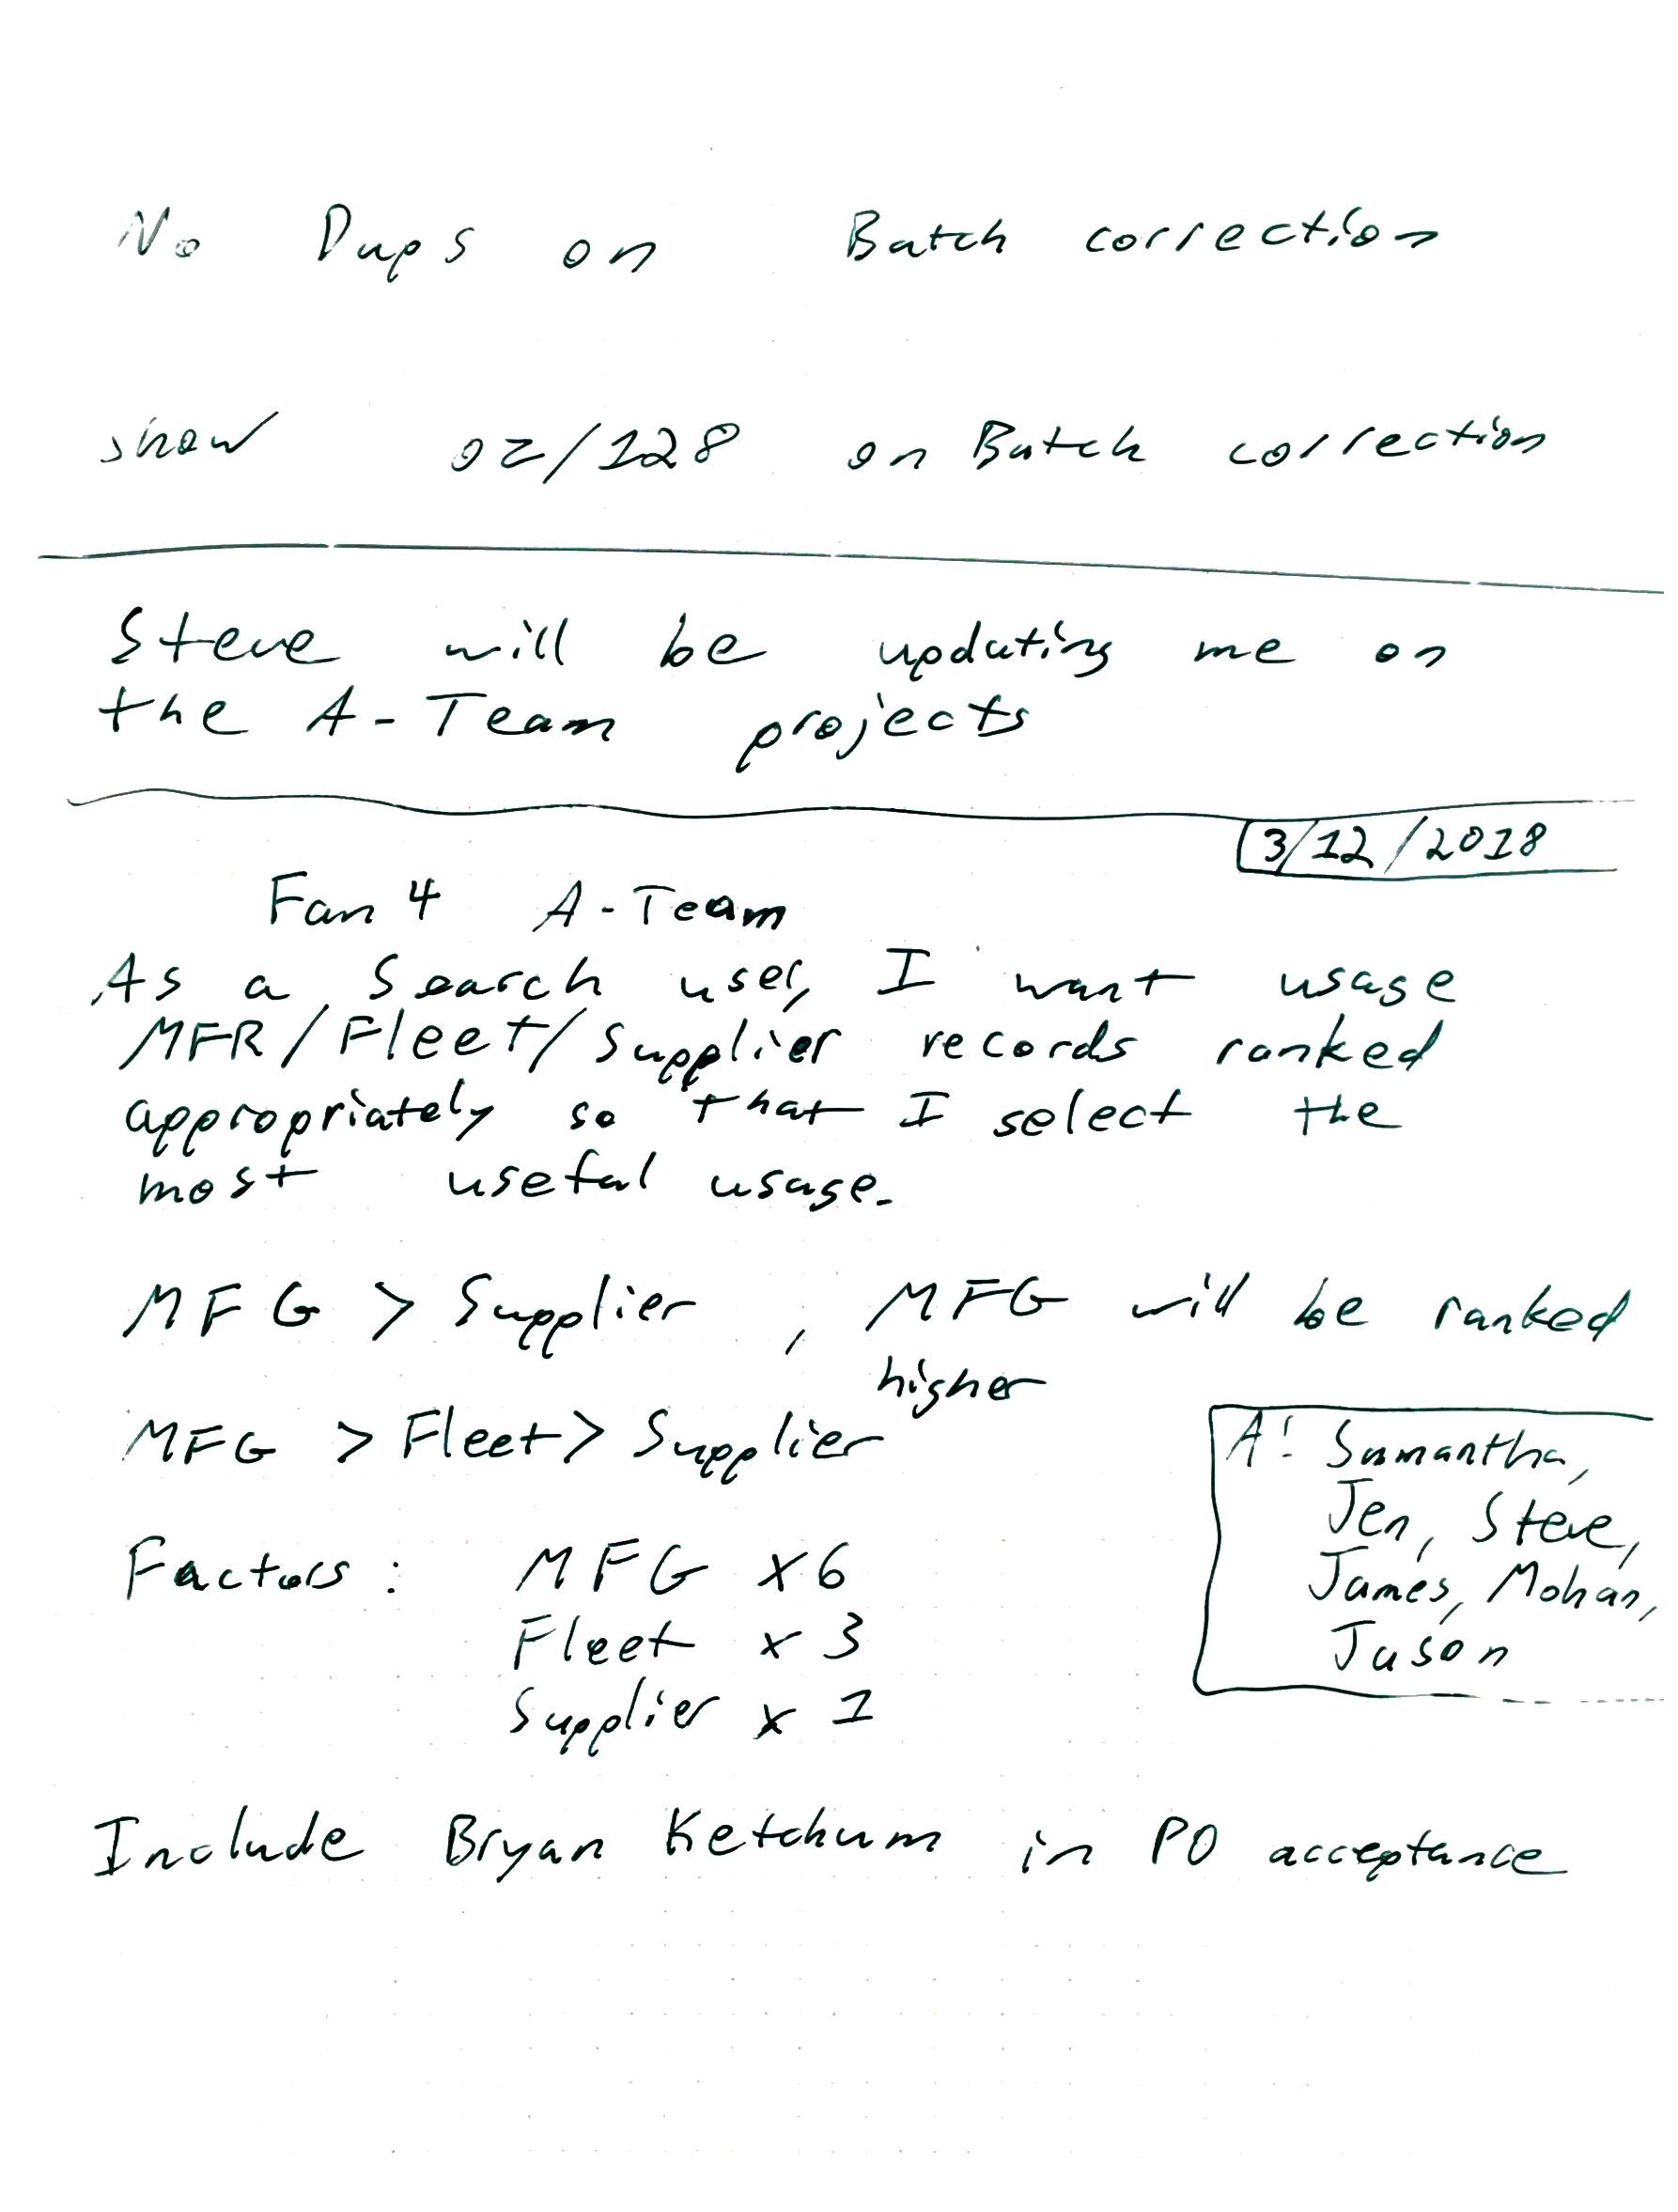 No Dups on Batch correction
show oz/128 on Batch correction
Steve will be updating me on
the A-Team projects
3/12/2018
Fan 4 A-Team
As a Search user, I want usage
MFR/Fleet/Supplier records ranked
appropriately so that I select the
most useful usage.
MFG > Supplier, MFG will be ranked
higher
MFG > Fleet > Supplier
A: Samantha,
Jen, Steve,
James, Mohan,
Jason
Factors: MFG x6
Fleet x 3
Supplier x 1
Include Bryan Ketchum in PO acceptance